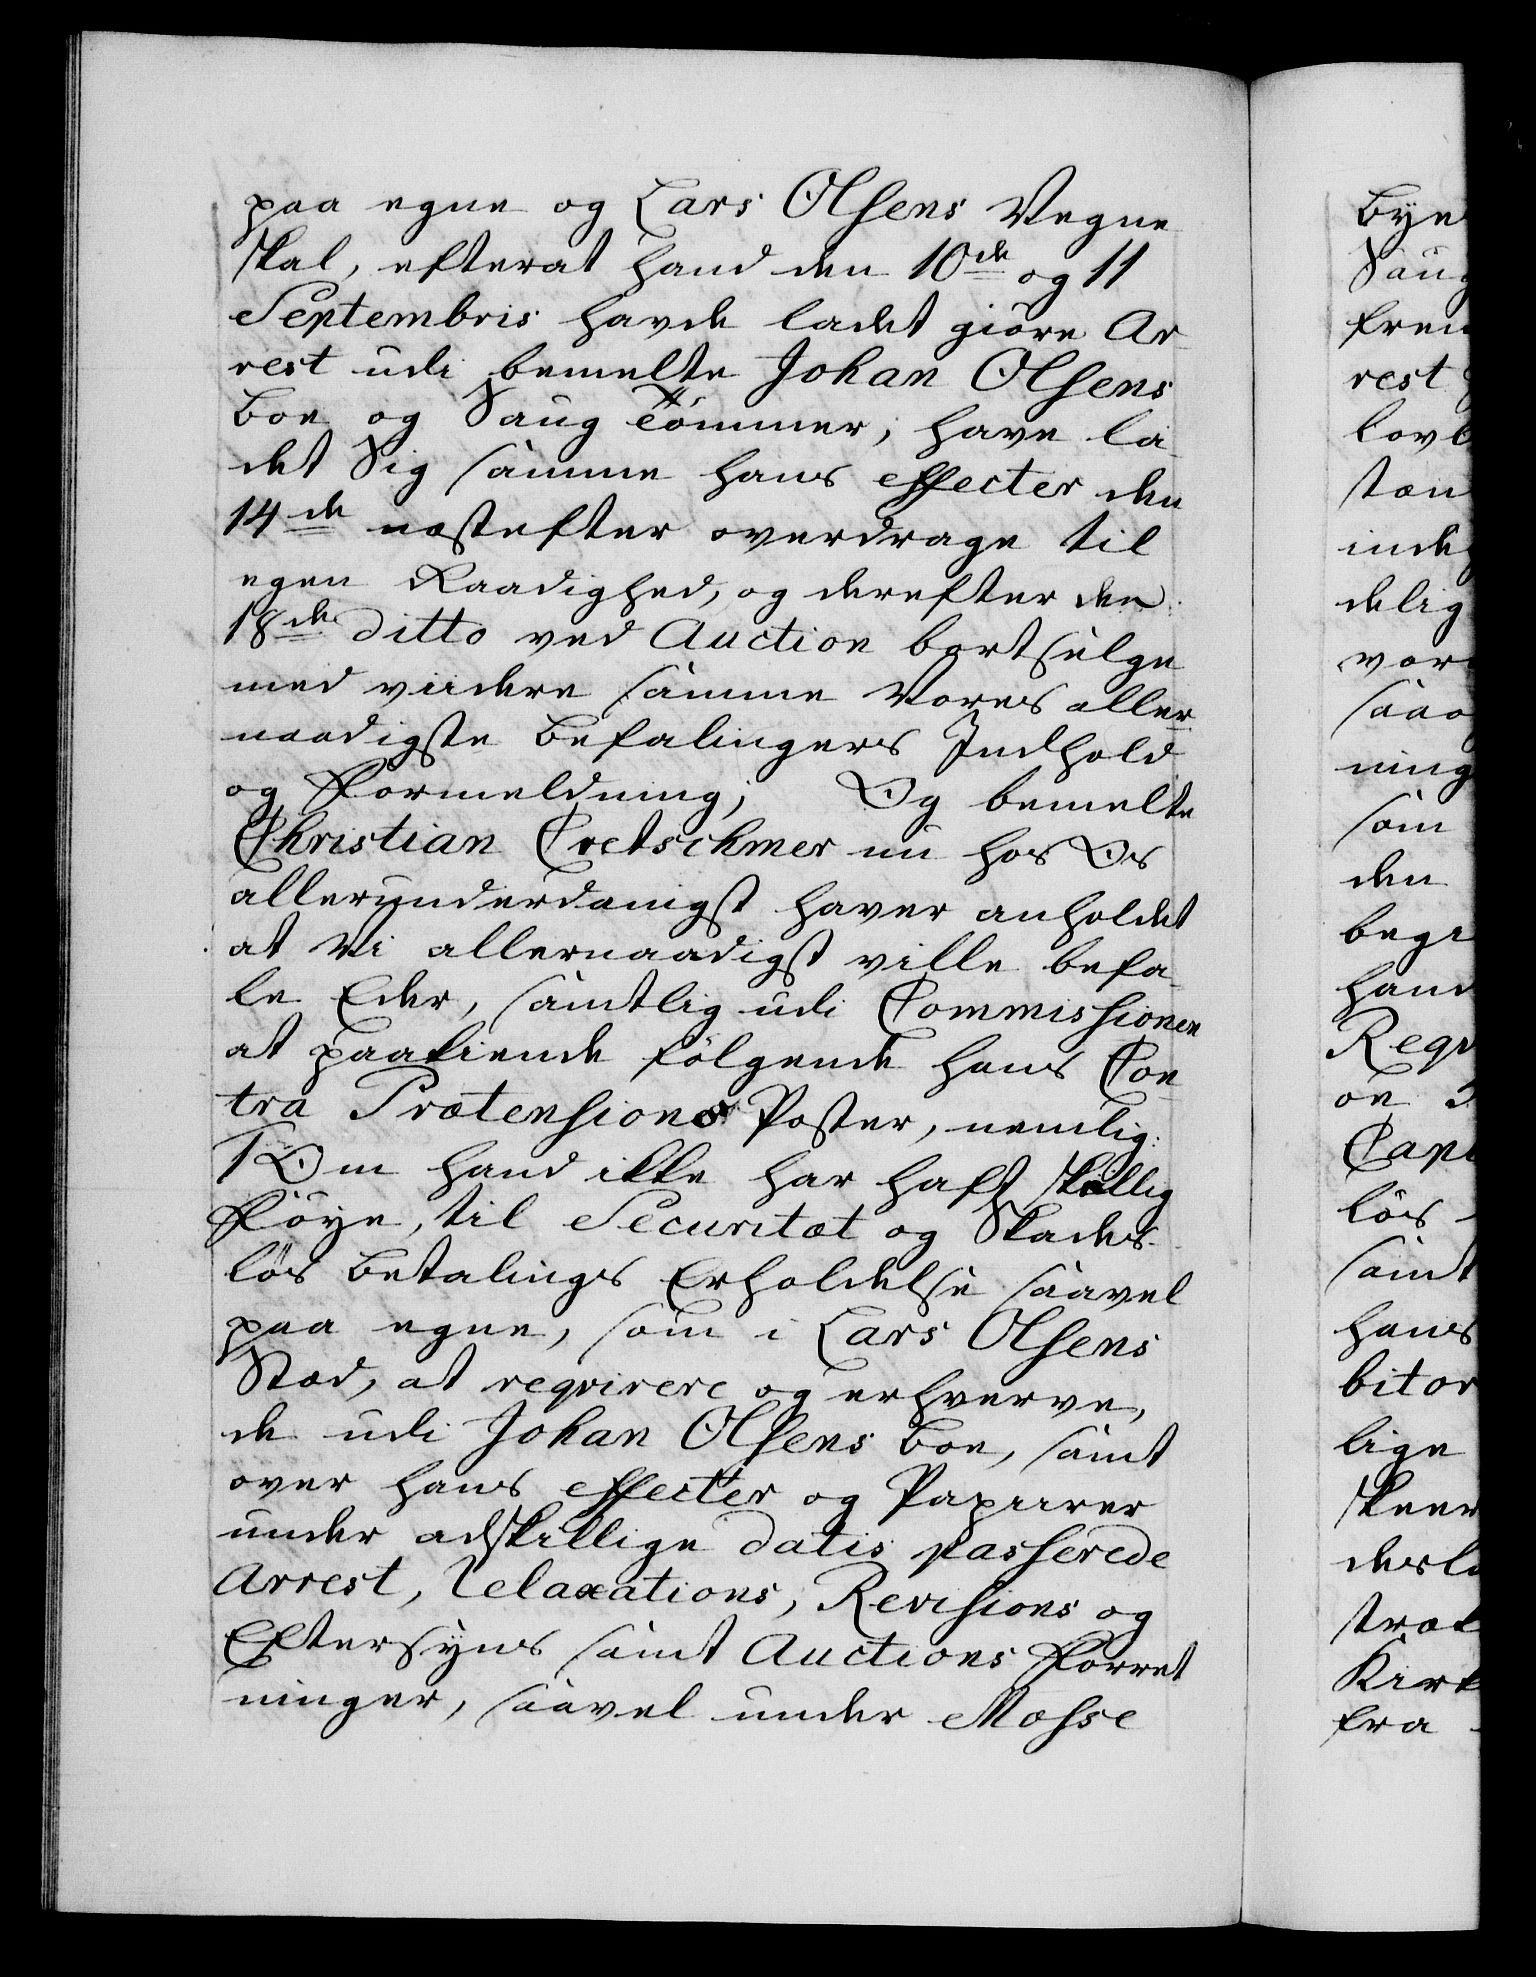 paa egne og Lars Olsens Vegne
skal, efterat hand den 10de og 11
Septembris havde ladet giöre Ar
rest udi bemelte Johan Olsens
Boe og Saug Tömmer, have la-
det Sig samme hans effecter den
14de næstefter overdrage til
egen Raadighed, og derefter den
18de ditto ved Auction bortsælge
med viidere samme Vores aller
naadigste Befalingers Indhold
og Formeldning; Og bemelte
Christian Cretschmer nu hos Os
allerunderdanigst haver anholdet
at Vi allernaadigst ville befa-
le Eder, samtlig udi Commissionen
at paakiende fölgende hans Con-
tra Prætensions Poster, nemlig:
1 Om hand ikke har haft skiellig
Föye, til Securitæt og Skades-
lös Betalings Erholdelse saavel
paa egne, som i Lars Olsens
Stæd, at reqvirere og erhverve,
de udi Johan Olsens Boe, samt
over hans effecter og Papiirer
under adskillige datis passerede
Arrest, Relaxations, Revisions og
Eftersyns samt Auctions Forret
ninger, saavel under Mosse
Bye
Saug
frem
rest
lovb
stæn
inde
delig
vor
saao
ning
som
den
begi
hand
Reqv
on
Capi
lös
samt
hans
bitor
lige
skeer
desl
træt
Kirk
fra